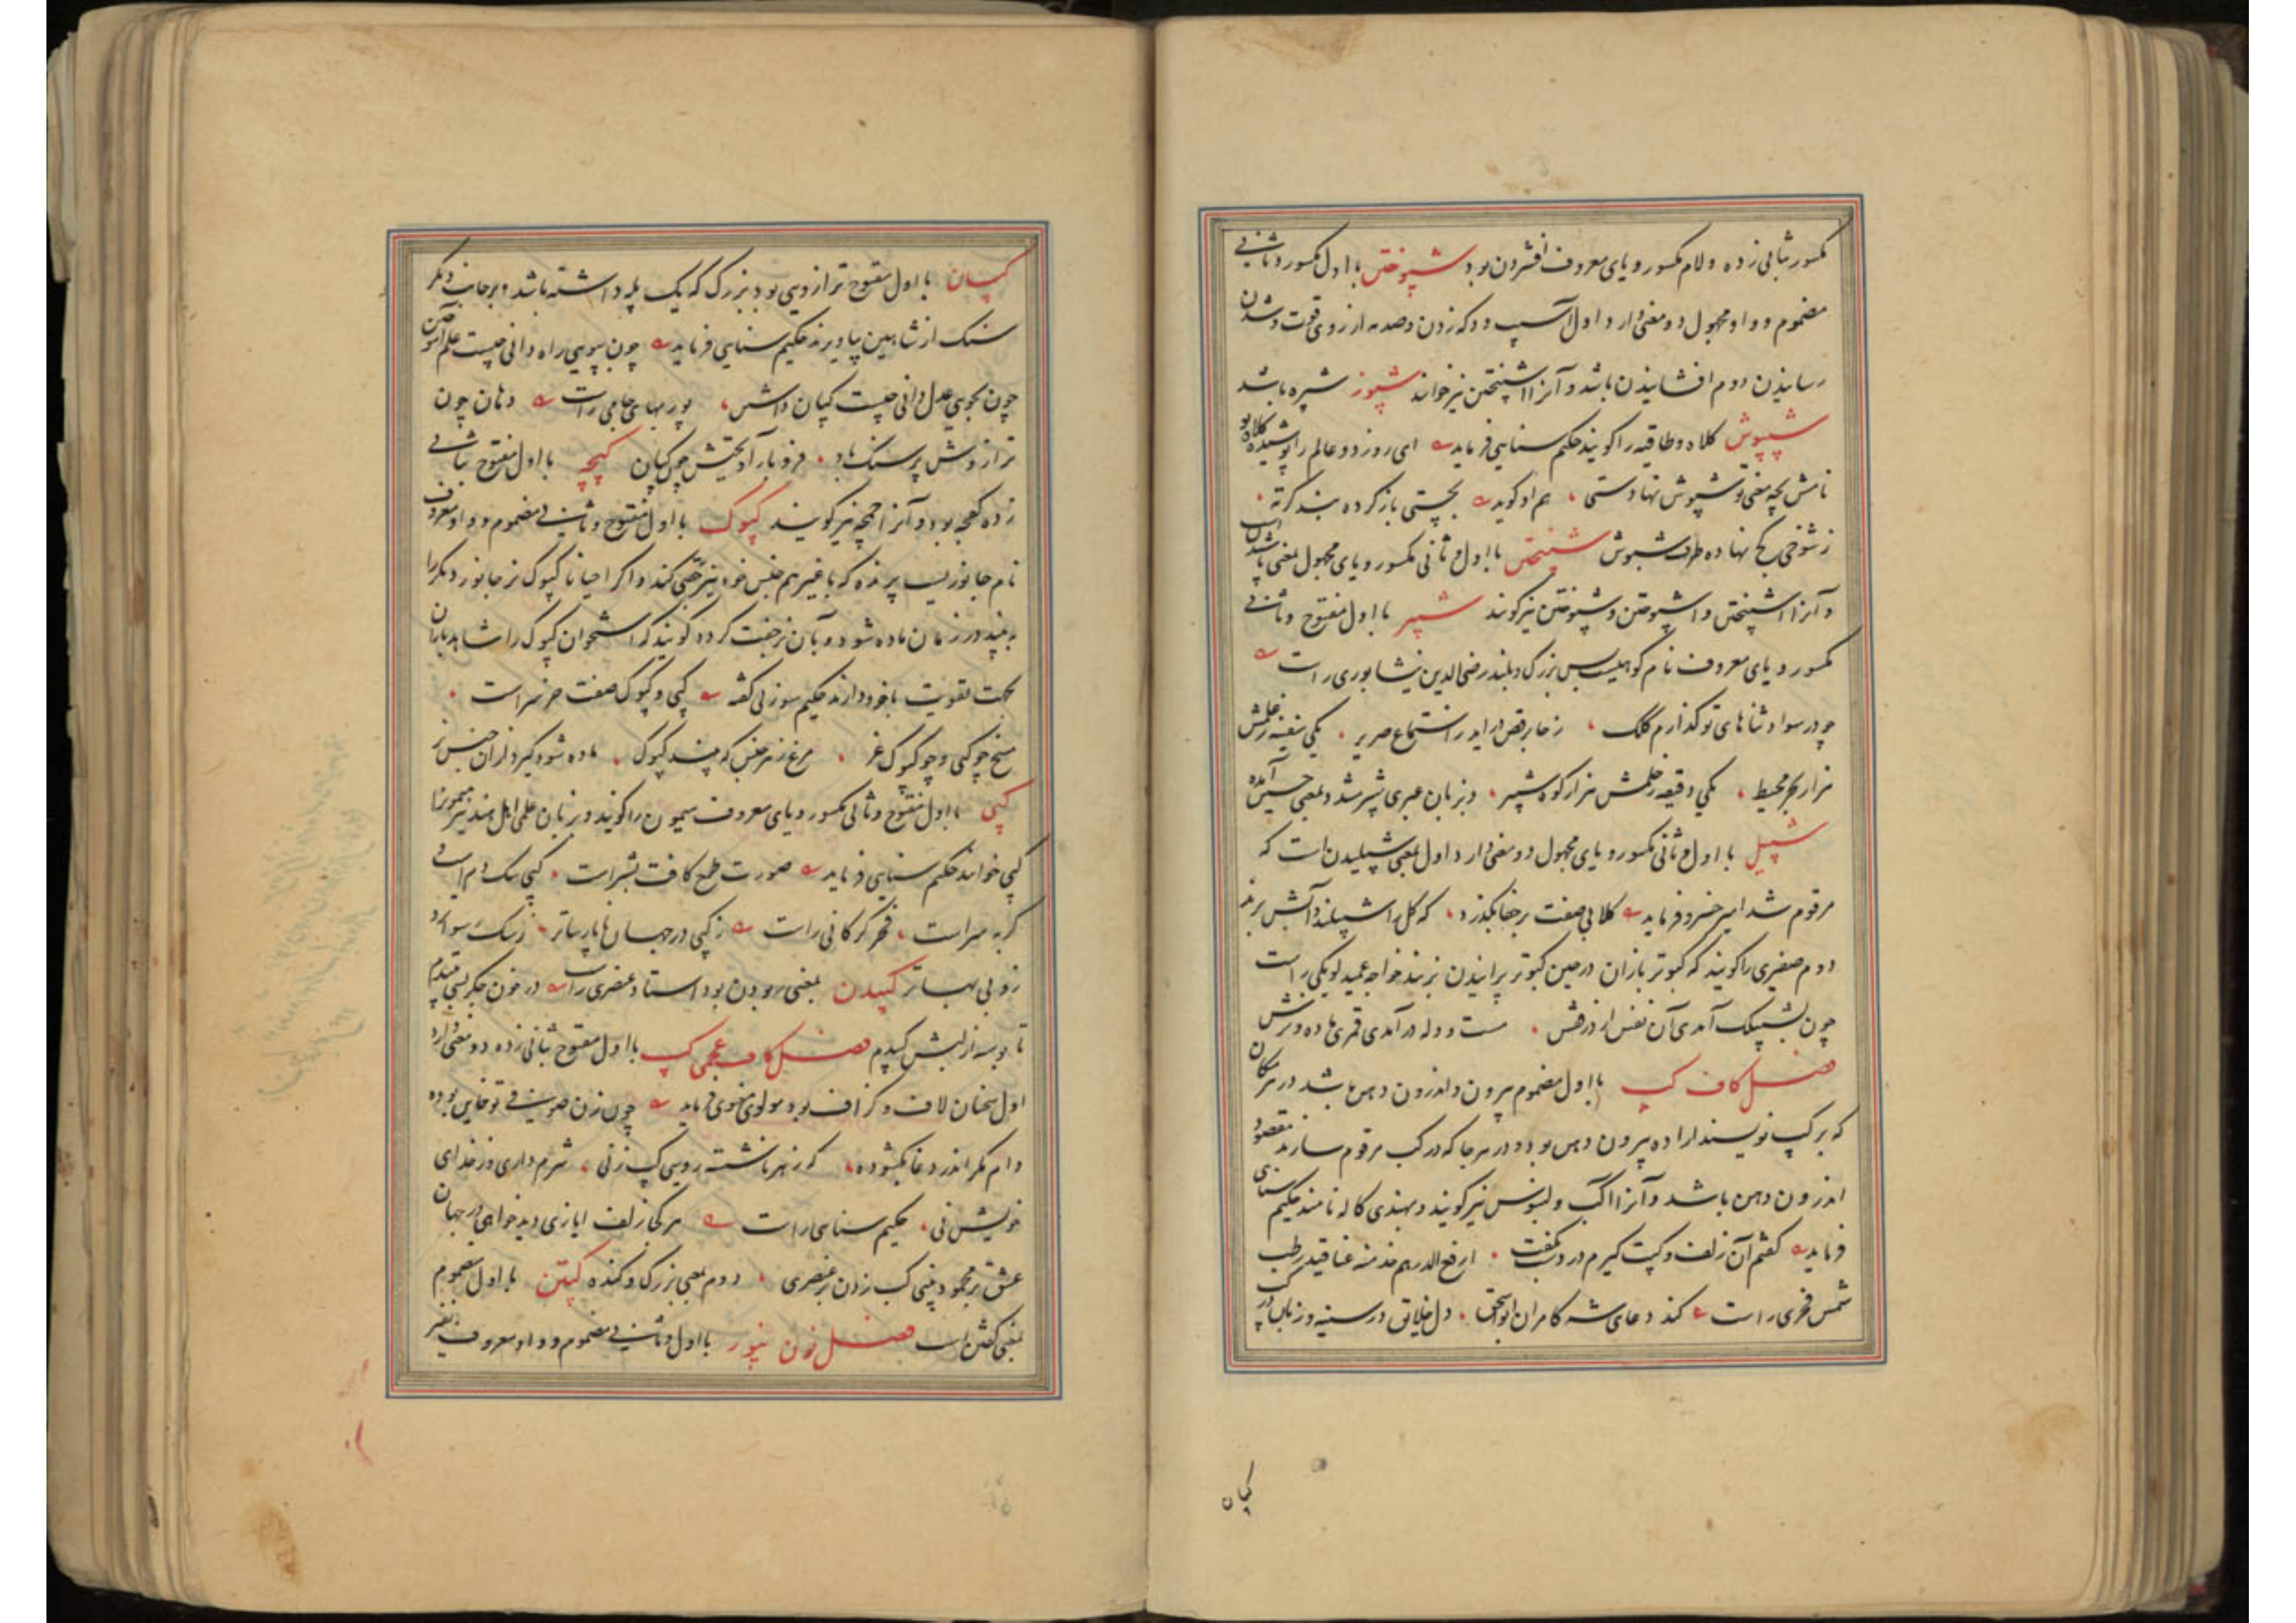 مکسور بثانی زده و لام مکسور و یای معروف افشردن بود شپوختن با اول مکسور و ثانی
مضموم و واو مجهول دو معنی دارد اول آسیب و دکه زدن و صدمه از روی قوت
رسانیدن دوم افشانیدن باشد و آنرا اشپیختن نیز خوانند شپوز شپره باشد
شپپوش کلاه و طاقیه را گویند حکیم سنایی فرماید ای روز دو عالم را پوشیده کلاه تو
نامش بچه معنی تو شپوش نهادستی هم او گوید بچستی باز کرده بند کرته
ز شوخی کج نهاده طرف شپوش شپیختن با اول و ثانی مکسور و یای مجهول بمعنی پاشیدن است
و آنرا اشپیختن و اشپوختن و شپوختن نیز گویند شپیر با اول مفتوح و ثانی
مکسور و یای معروف نام کوهیست بس بزرگ و بلند رضی الدین نیشابوری راست
چو در سواد ثناهای تو گذارم کلک ز خابرقص در اید از استماع صریر یکی سفینه ز علمش
هزار بحر محیط یکی دقیقه ز حلمش هزار کوه شپیر و بزبان عبری شپر شد و بمعنی حسین آمده
شپیل با اول و ثانی مکسور و یای مجهول دو معنی دارد اول بمعنی شپیلیدن است که
مرقوم شد امیر خسرو فرماید کلابی صفت بر جفا بگذرد که گل را شپیلند و آتش برند
دوم صفیری را گویند که کبوتر بازان در حین کبوتر پرانیدن بزنند خواجه عمید لویکی راست
چون بشپیلک آمدی آن نفس از درفش مست و وله در آمدی قمری ماده و نرش
فصل کاف کپ با اول مضموم بیرون و اندرون دهن باشد در هر مکان
که بر کپ نویسند اراده بیرون دهن بود و در هر جا که در کب مرقوم سازند مقصود
اندرون دهن باشد و آنرا اکب و لبوس نیز گویند و بهندی کاله نامند حکیم سنای
فرماید گفتم آن زلف و کپت گیرم در دست بگفت ارفع الدرهم خذ منه عناقید رطب
شمس فخری راست کند دعای شه کامران ابو اسحق دل خلایق در سینه و زبان در کپ
کپان
کپان با اول مفتوح ترازویی بود بزرگ که یک پله داشته باشد و بر جانب دیگر
سنگ از شاهین بیاویزند حکیم سنایی فرماید چون بپویی راه دانی چیست علم آموختن
چون بجویی عدل دانی چیست کپان داشتن پور بهای جامی راست دهان چون
ترازوش پر سنگ باد فرو بار آویختش چون کپان کپچه با اول مفتوح بثانی
زده کفچه بود و آنرا چمچه نیز گویند کپوک با اول مفتوح و ثانی مضموم و واو معروف
نام جانوریست پرنده که با غیر هم جنس خود نیز جفتی کند و اگر احیانا کپوک نر جانور دیگر را
به بیند در زمان ماده شود و بآن نر جفت کرده گویند که استخوان کپوک را شاید یاران
بجهت تقویت با خود دارند حکیم سوزنی گفته کپی و کپوک صفت حر نر است
سنخ چو کپی و چو کپوک غر مرغ نر هر جنس که بیند کپوک ماده شود گیرد از آن جنس نر
کپی با اول مفتوح و ثانی مکسور و یای معروف میمون را گویند و بزبان علمی اهل هند نیز میمون را
کپی خوانند حکیم سنایی فرماید صورت طمع کافت بشر است کپی سگ دم است
گربه سر است فخر گرگانی راست ز کپی در جهان ناپارساتر ز سگ رسواتر و
زو بی بهاتر کپیدن بمعنی ربودن بود استاد عنصری راست در خون جگر بسی تپیدم
تا بوسه از لبش کپیدم فصل کاف عجمی کپ با اول مفتوح بثانی زده دو معنی دارد
اول سخنان لاف و گزاف بود مولوی معنوی فرماید چون زن صوفی تو خاین بوده
دام مکر اندر دغا بگشوده که ز هر ناشسته رویی کپ زنی شرم داری وز خدای
خویش نی حکیم سنای راست هر کجا زلف ایازی دید خواهی در جهان
عشق بر محمود بینی کپ زدن بر عنصری دوم بمعنی بزرگ و گنده کپتن با اول مضموم
بمعنی گفتن است فصل نون نپور با اول و ثانی مضموم و واو معروف نفیر